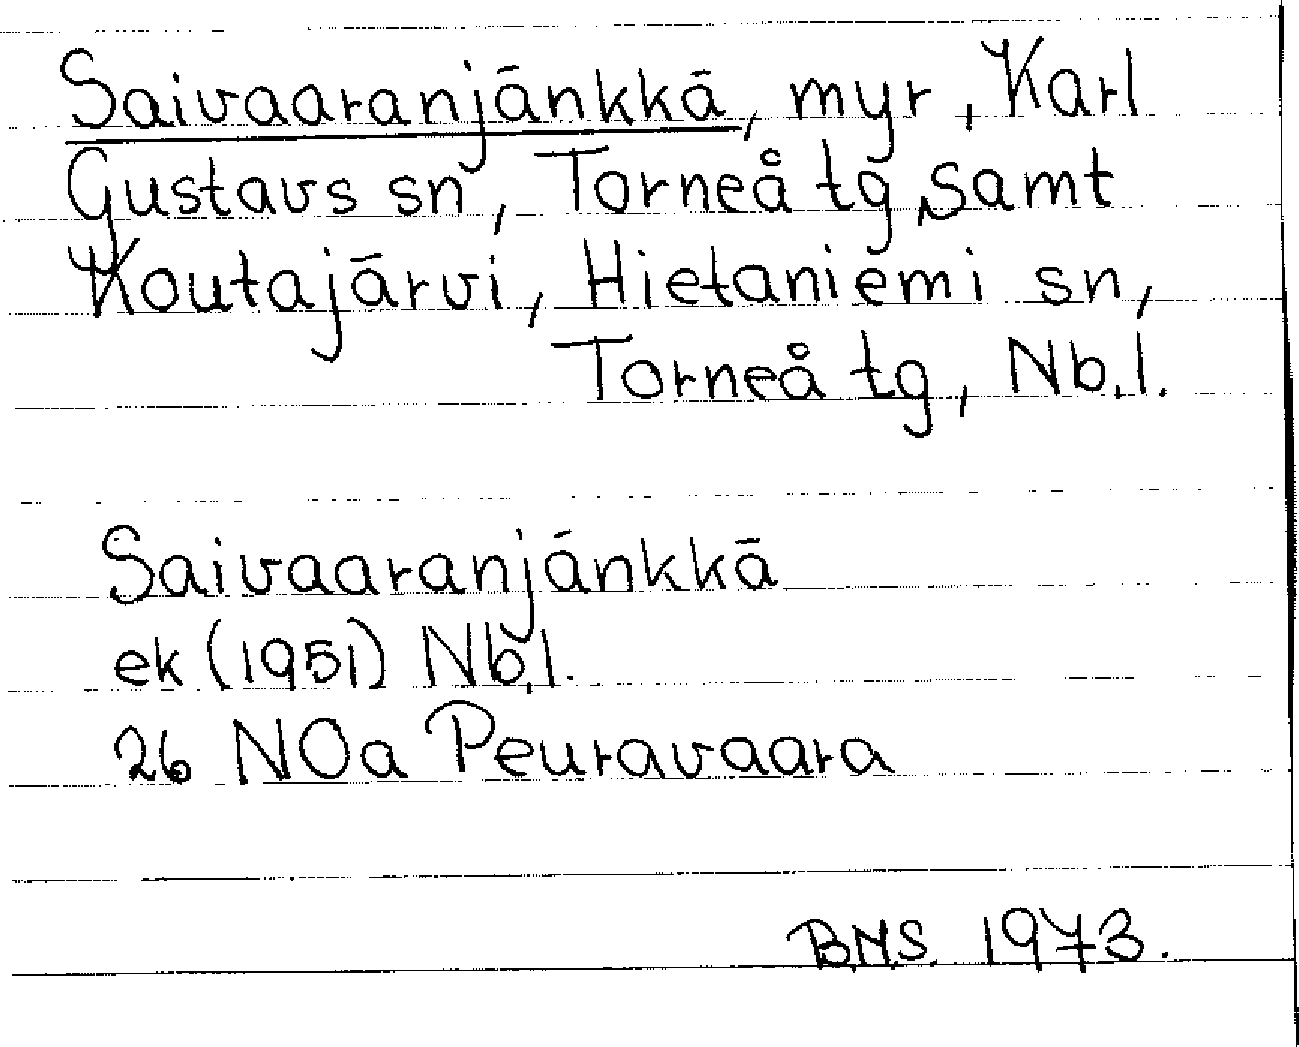 Saivaaranjänkkä, myr, Karl
Gustavs sn, Torneå tg, samt
Koutajärvi, Hietaniemi sn,
Torneå tg, Nb.l.
Saivaaranjänkkä
ek (1951) Nb.l.
26 NOa Peuravaara
B.N.S. 1973.